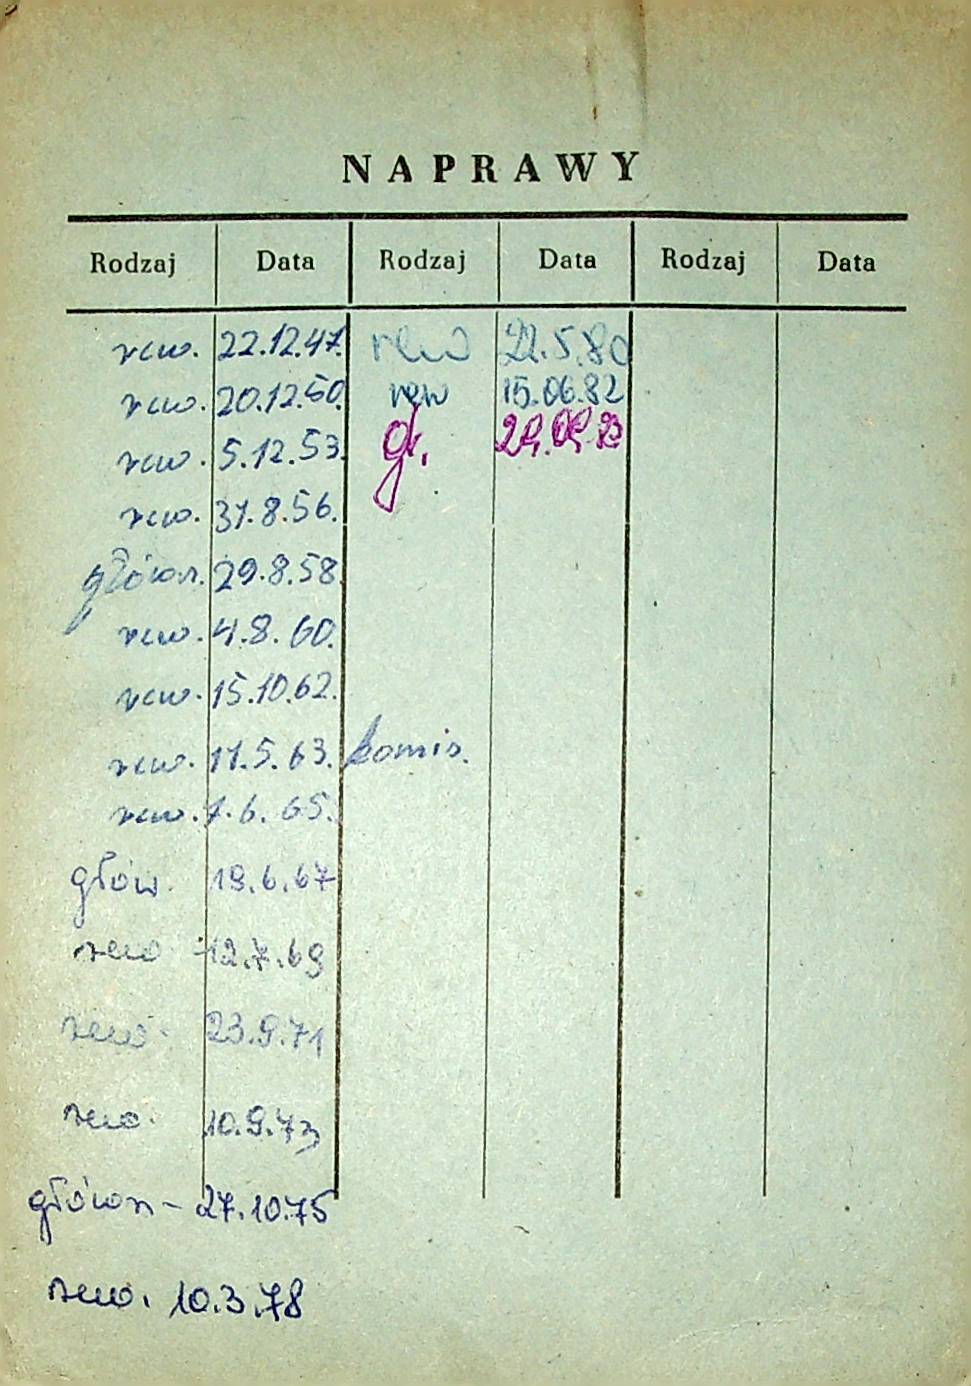 NAPRAWY
Rodzaj Data Rodzaj Data Rodzaj Data
rew. 22.12.47. rew 22.5.80
rew. 20.12.50. rew 15.06.82
rew. 5.12.53. gł.
rew. 31.8.56.
główn. 29.8.58.
rew. 4.8.60.
rew. 15.10.62.
rew. 11.5.63. komis.
rew. 7.6.65.
głów. 19.6.67
rew 12.7.69
rew. 23.9.71
rew. 10.9.73
główn - 27.10.75
rew. 10.3.78